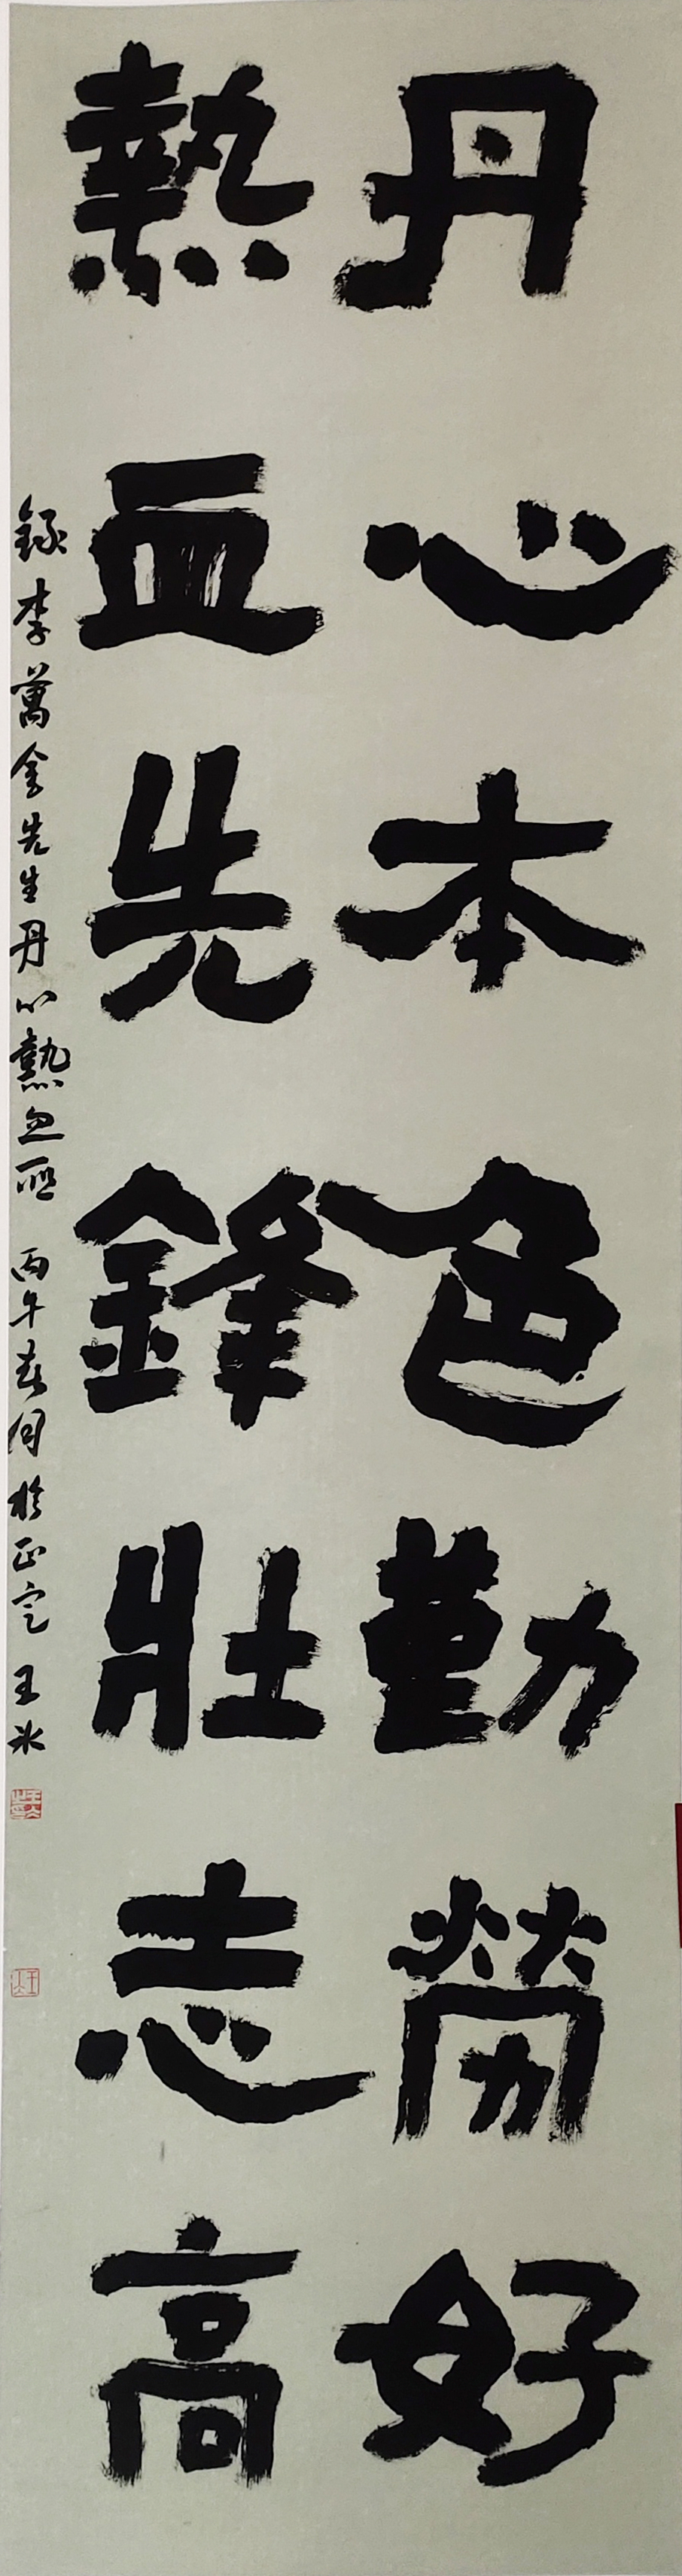 丹心本色勤勞好
熱血先鋒壯志高
錄李萬金先生丹心熱血聯 丙午春月於正定 王冰